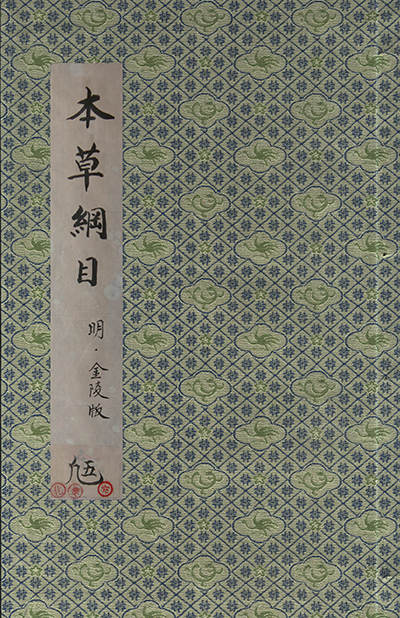 本草綱目
明·金陵版
五